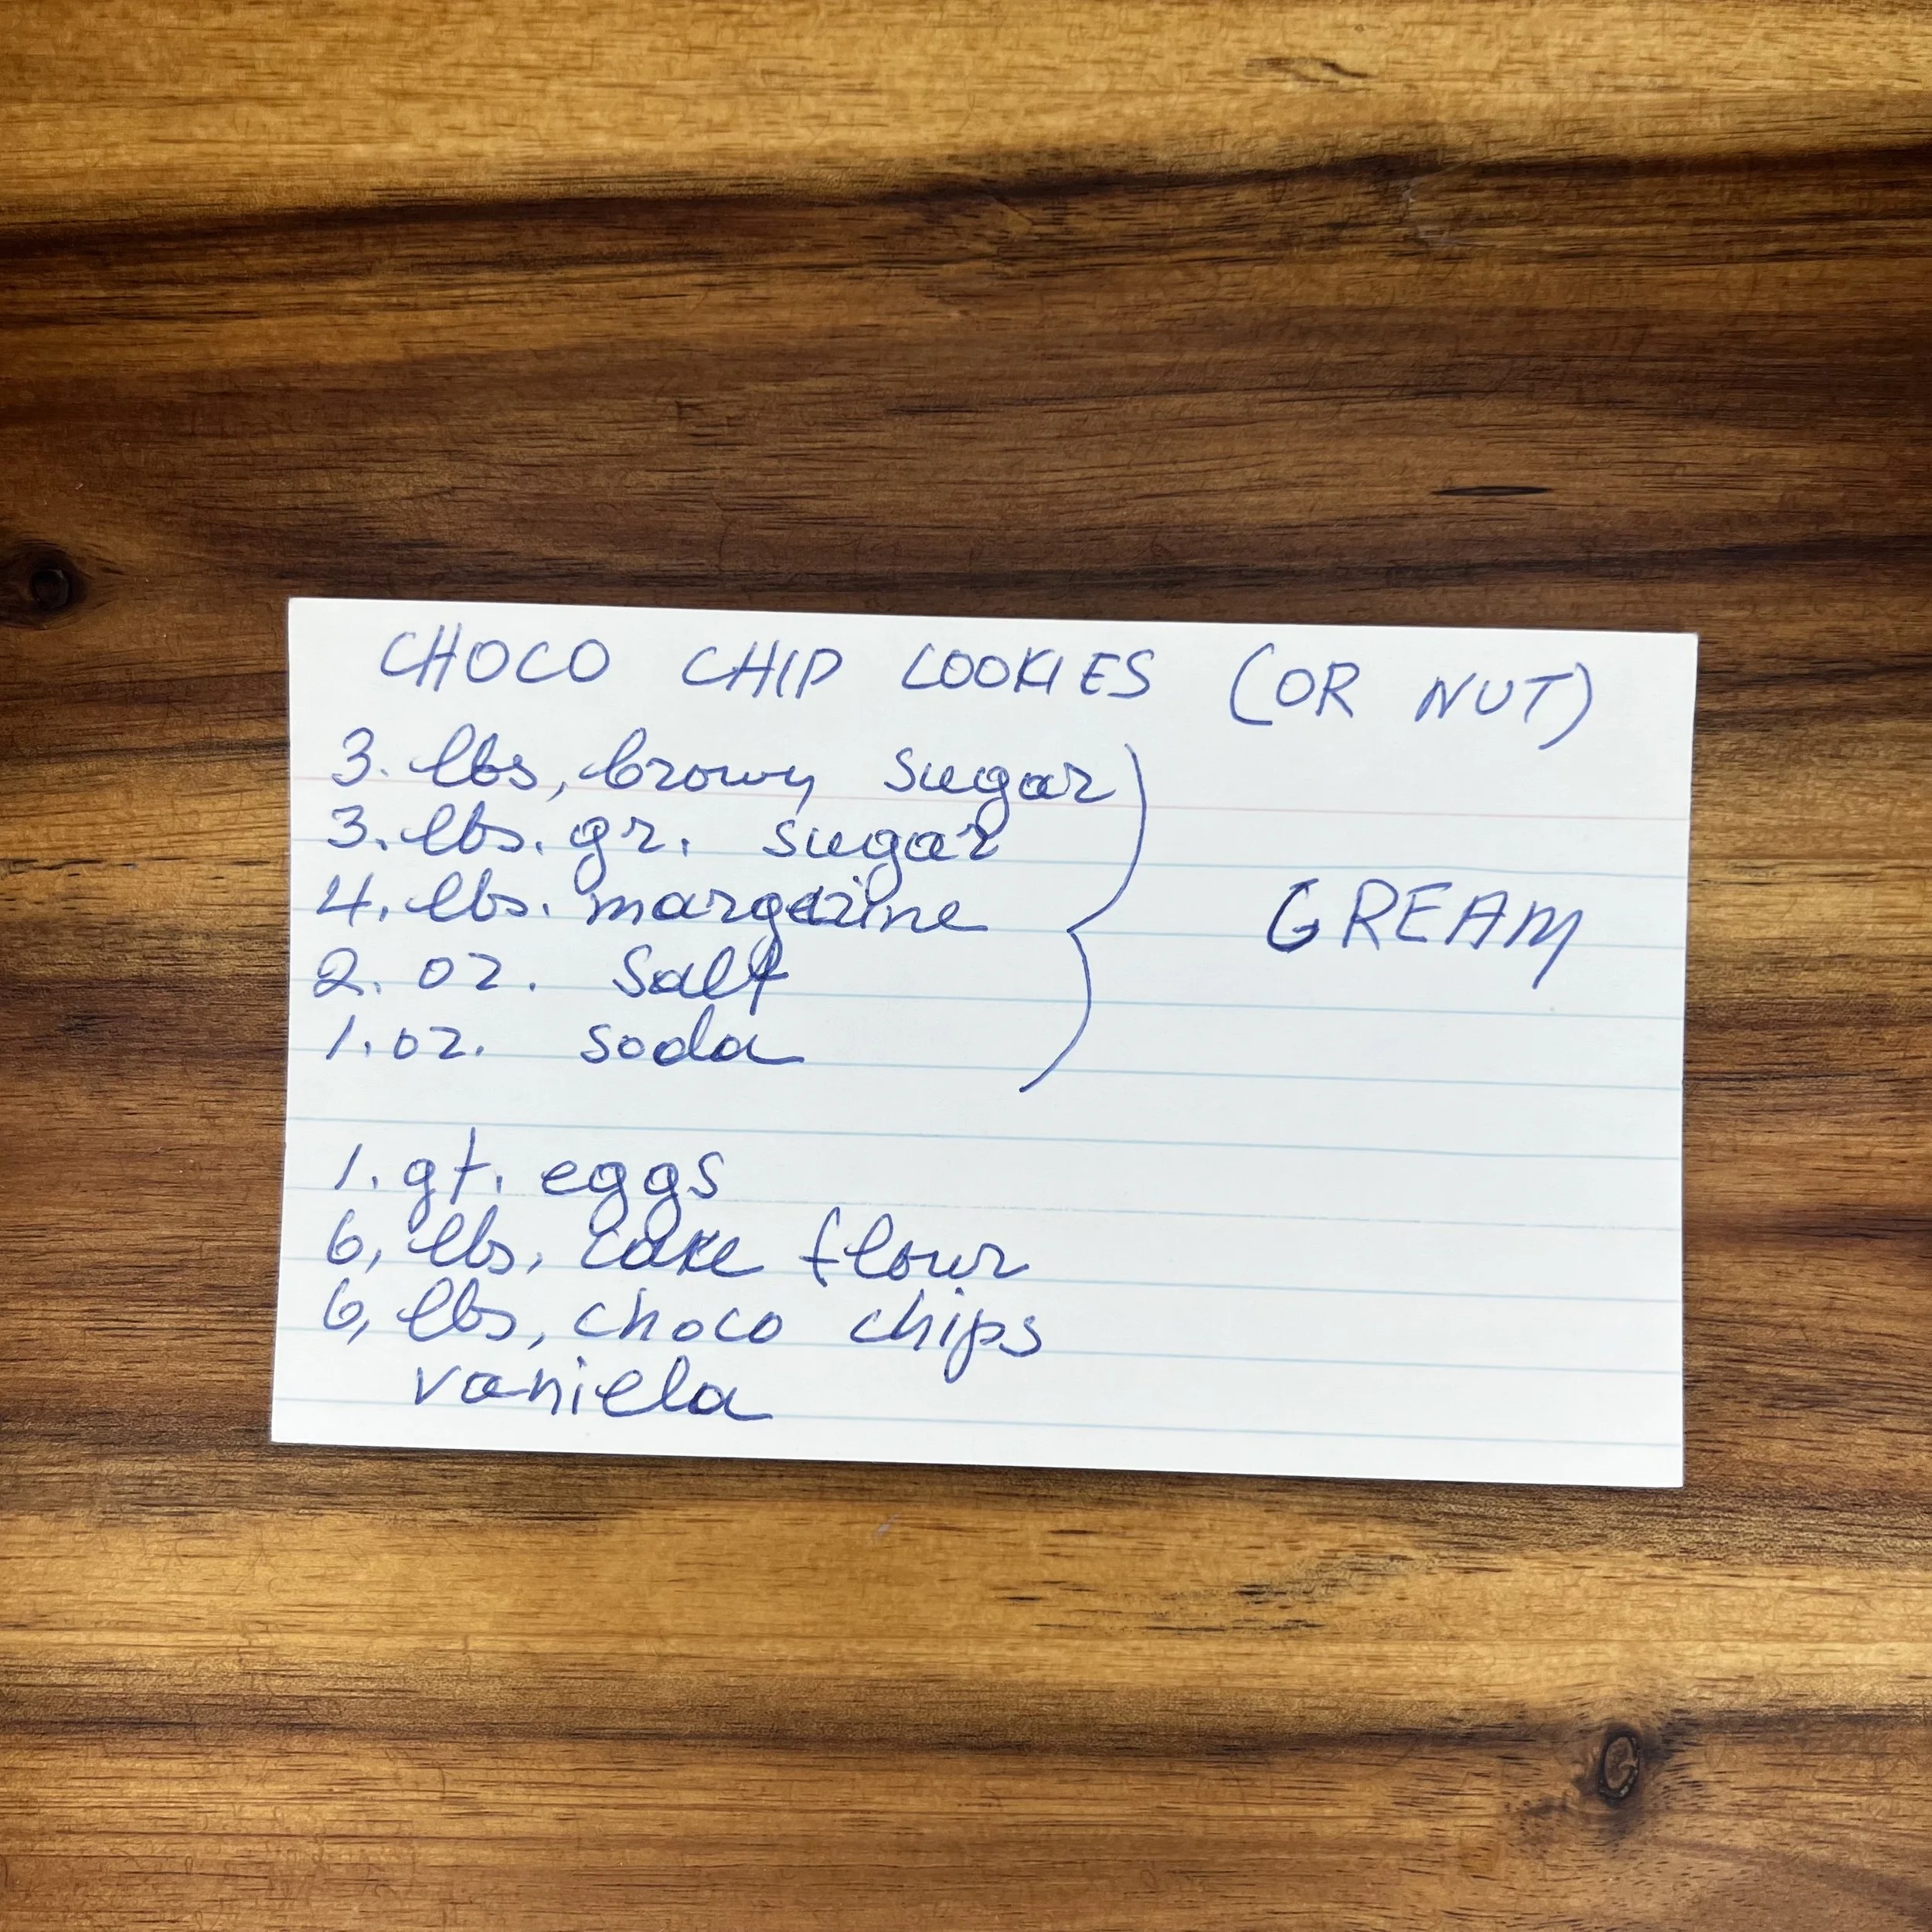 CHOCO CHIP COOKIES (OR NUT)
3. lbs, brown sugar
3. lbs. gr. sugar
4. lbs. margarine
2. oz. salt
1. oz. soda
CREAM
1. qt. eggs
6, lbs, cake flour
6, lbs, choco chips
vaniela